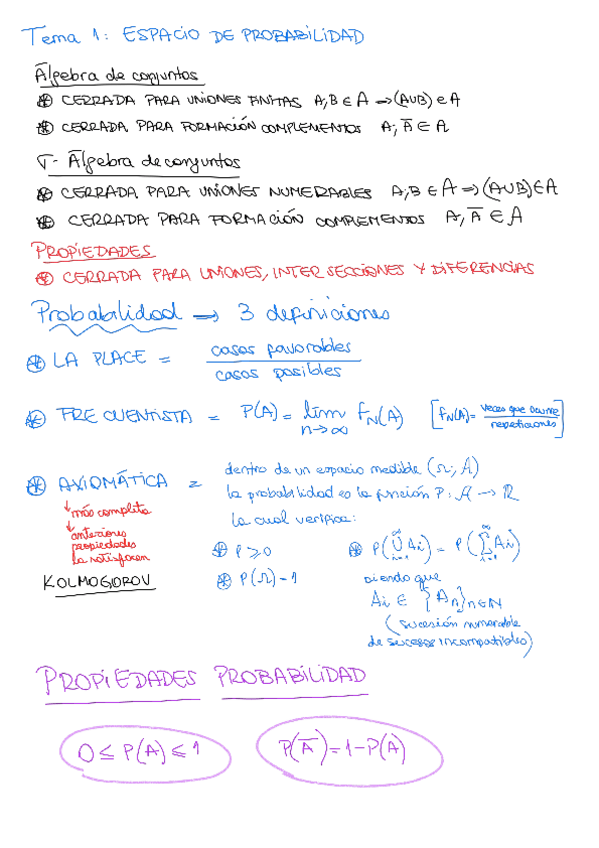 Tema 1: ESPACIO DE PROBABILIDAD
Álgebra de conjuntos
⊛ CERRADA PARA UNIONES FINITAS A,B ∈ A → (A∪B) ∈ A
⊛ CERRADA PARA FORMACIÓN COMPLEMENTOS A, Ā ∈ A
σ - Álgebra de conjuntos
⊛ CERRADA PARA UNIONES NUMERABLES A,B ∈ A ⇒ (A∪B) ∈ A
⊛ CERRADA PARA FORMACIÓN COMPLEMENTOS A, Ā ∈ A
PROPIEDADES
⊛ CERRADA PARA UNIONES, INTERSECCIONES Y DIFERENCIAS
Probabilidad → 3 definiciones
⊛ LA PLACE = casos favorables / casos posibles
⊛ FRECUENTISTA = P(A) = lim n→∞ fN(A) [fN(A) = veces que ocurre / repeticiones]
⊛ AXIOMÁTICA = dentro de un espacio medible (Ω, A)
la probabilidad es la función P: A → ℝ
la cual verifica:
↓ más completa
↓ anteriores
propiedades
la satisfacen
KOLMOGIOROV
⊛ P ≥ 0
⊛ P(Ω) = 1
⊛ P(∞⋃i=1 Ai) = P(∞∑i=1 Ai)
siendo que
Ai ∈ {An}n∈N
(sucesión numerable
de sucesos incompatibles)
PROPIEDADES PROBABILIDAD
0 ≤ P(A) ≤ 1
P(Ā) = 1 - P(A)